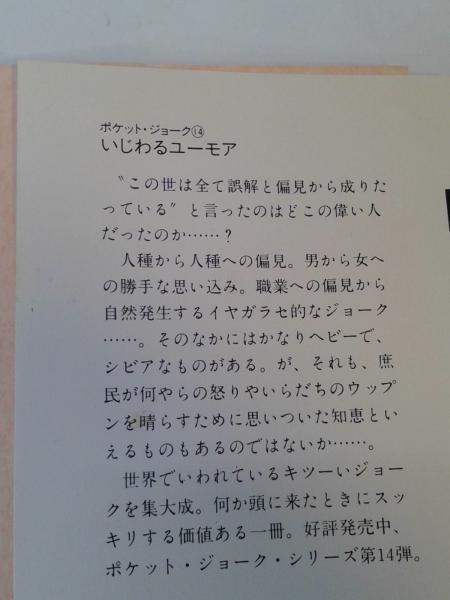 ポケット・ジョーク⑭
いじわるユーモア
〝この世は全て誤解と偏見から成りた
っている〟と言ったのはどこの偉い人
だったのか……？
人種から人種への偏見。男から女へ
の勝手な思い込み。職業への偏見から
自然発生するイヤガラセ的なジョーク
……。そのなかにはかなりヘビーで、
シビアなものがある。が、それも、庶
民が何やらの怒りやいらだちのウップ
ンを晴らすために思いついた知恵とい
えるものもあるのではないか……。
世界でいわれているキツーいジョー
クを集大成。何か頭に来たときにスッ
キリする価値ある一冊。好評発売中、
ポケット・ジョーク・シリーズ第14弾。